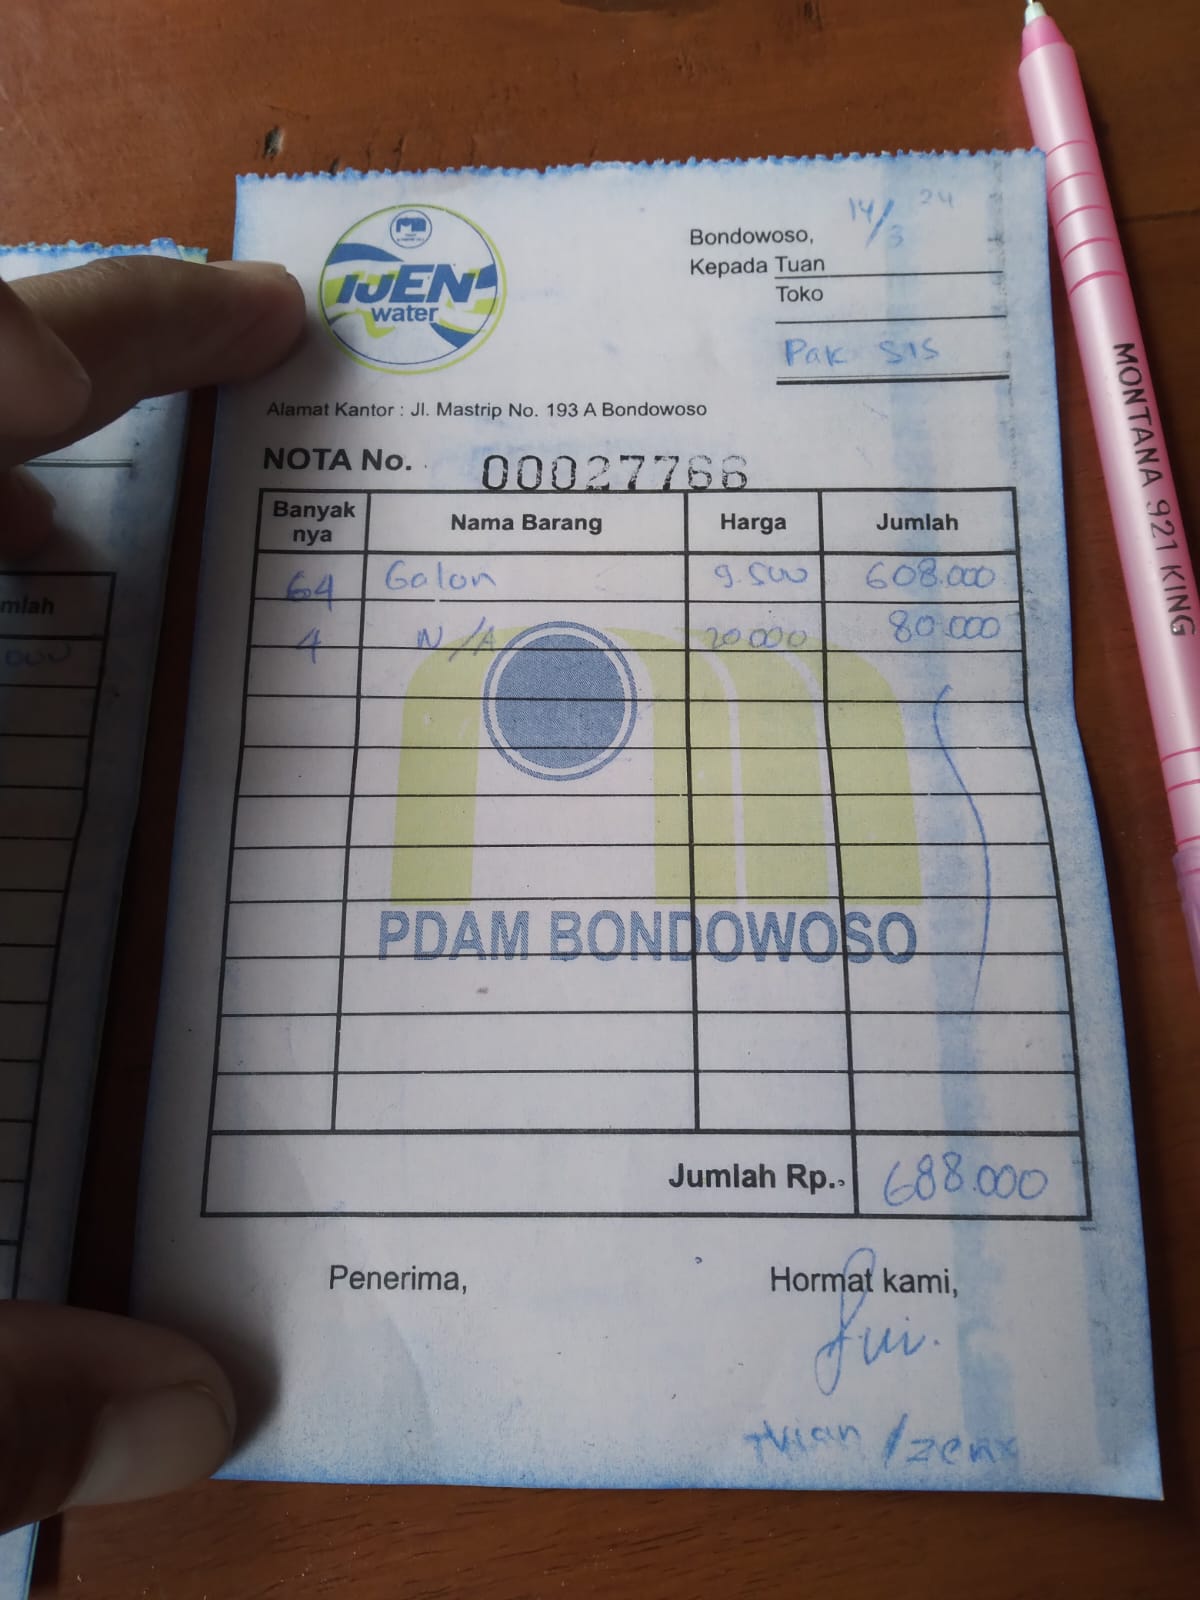 IJEN
water
Bondowoso, 14/3 24
Kepada Tuan
Toko
Pak SIS
Alamat Kantor : Jl. Mastrip No. 193 A Bondowoso
NOTA No. 00027766
Banyak nya Nama Barang Harga Jumlah
64 Galon 9.500 608.000
4 N/A 20000 80.000
PDAM BONDOWOSO
Jumlah Rp. 688.000
Penerima, Hormat kami,
mlah
MONTANA 921 KING